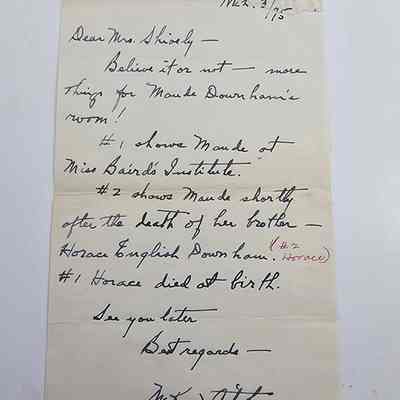 3/75
Dear Mrs. Shively —
Believe it or not — more
things for Maude Downham's
room!
#1 shows Maude at
Miss Baird's Institute.
#2 shows Maude shortly
after the death of her brother —
Horace English Downham. (#2
Horace)
#1 Horace died at birth.
See you later
Best regards —